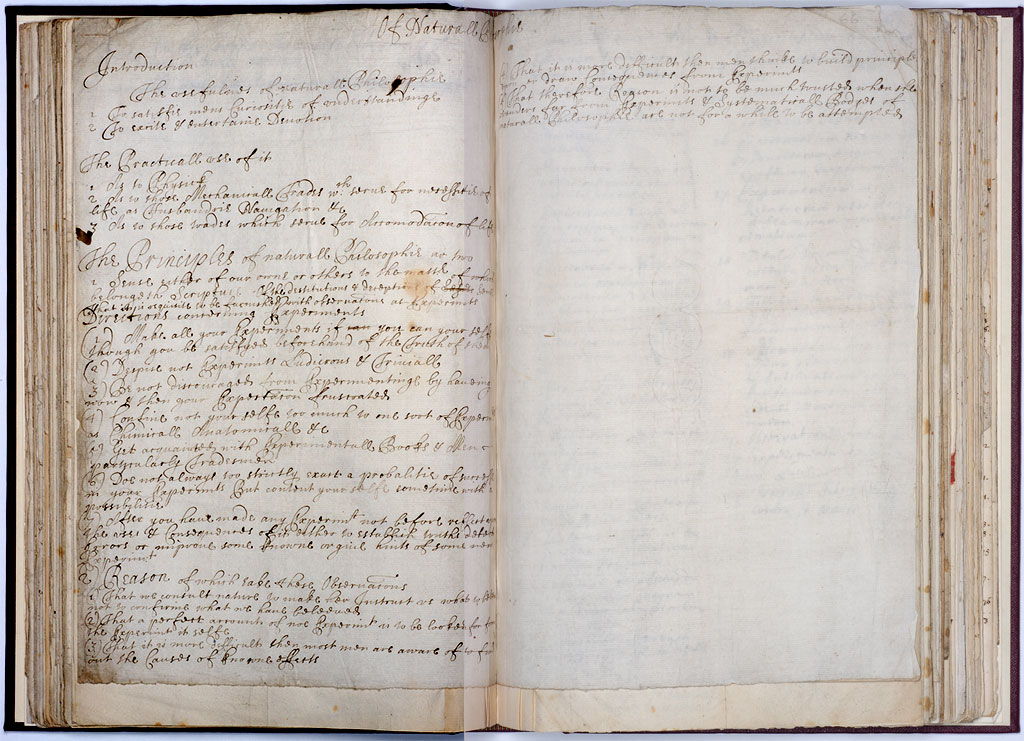 Of Naturall
Introduction
The usefulnes of naturall Philosophie
1 To satisfie mens Curiositie of understandinge
2 To excite & entertaine Devotion
The Practicall use of it
1 As to Physick
2 As to those Mechanicall Trades wch serve for necessities of
life as Husbandrie Navigation &c
3 As to those trades which serve for Accomodacon of life
The Principles of naturall Philosophie are two
1 Sense either of our owne or others to the
belongeth Scripture & the destitutions & deception of
That it is requisite to be furnished with observations at Experimts
Directions concerning Experiments
(1) Make all your Experiments if you can your selfe
though you be satisfyed beforehand of the Truth of them
(2) Despise not Experimts Ludicrous & Triviall
3) Be not discouraged from Experimentinge by haveing
now & then your Expectation frustrated
(4) Confine not your selfe too much to one sort of Experi
as Chimicall Anatomicall &c
5) Get acquainted with Experimentall Books & Men
particularly Tradesmen
(6) Doe not always too strictly exact a probabilitie of
in your Experimts But content your selfe sometime with a
possibilitie
7) After you have made any Experimt not before reflect upon
the uses & Consequences of it either to establish truths detect
Errors or improve some knowne or give hints of some new
Experimt
2) Reason of which take these Observations
1) That we consult nature to make her Instruct us what to
not to confirme what we have beleeved
(2) That a perfect account of noe Experimt is to be looked for from
the Experimt it selfe
(3) That it is more difficult then most men are aware of to find
out the Causes of knowne effects
4 That it is more difficult then men thinke to build principles
or draw Consequences from Experimts
5 That therefore Reason is not to be much trusted when she
wanders far from Experimts & Systematicall Bodyes of
naturall Philosophie are not for a while to be attempted